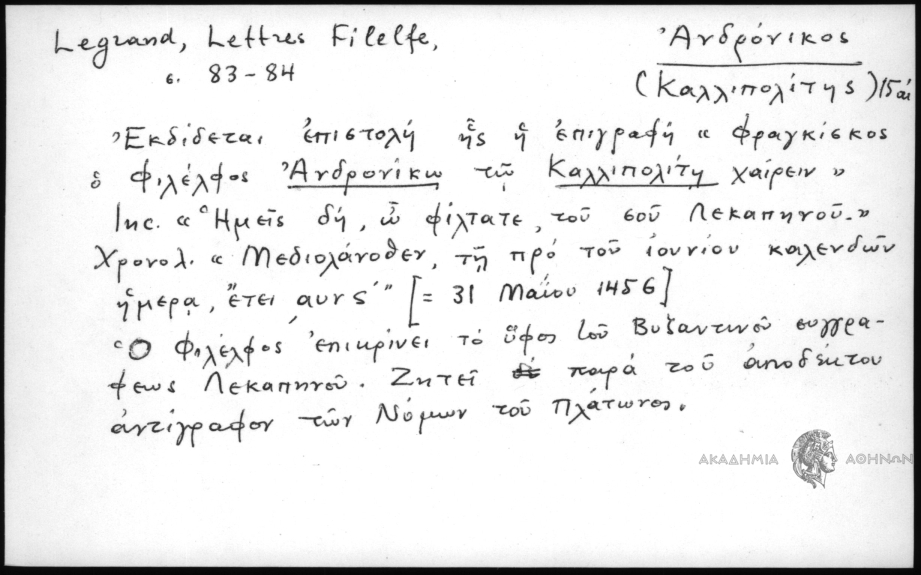 Legrand, Lettres Filelfe,
σ. 83-84
Ἀνδρόνικος
(Καλλιπολίτης) 15 αἰ
Ἐκδίδεται ἐπιστολή ἧς ἡ ἐπιγραφή « Φραγκίσκος
ὁ Φιλέλφος Ἀνδρονίκω τῷ Καλλιπολίτῃ χαίρειν »
Inc. « Ἡμεῖς δή, ὦ φίλτατε, τοῦ σοῦ Λεκαπηνοῦ.»
Χρονολ. « Μεδιολάνοθεν, τῇ πρό τοῦ ἰουνίου καλενδῶν
ἡμέρᾳ, ἔτει ͵αυνϛ΄" [= 31 Μαΐου 1456]
Ὁ Φιλέλφος ἐπικρίνει τό ὕφος τοῦ Βυζαντινοῦ συγγρα-
φεως Λεκαπηνοῦ. Ζητεῖ παρά τοῦ ἀποδέκτου
ἀντίγραφον τῶν Νόμων τοῦ Πλάτωνος.
ΑΚΑΔΗΜΙΑ ΑΘΗΝΩΝ